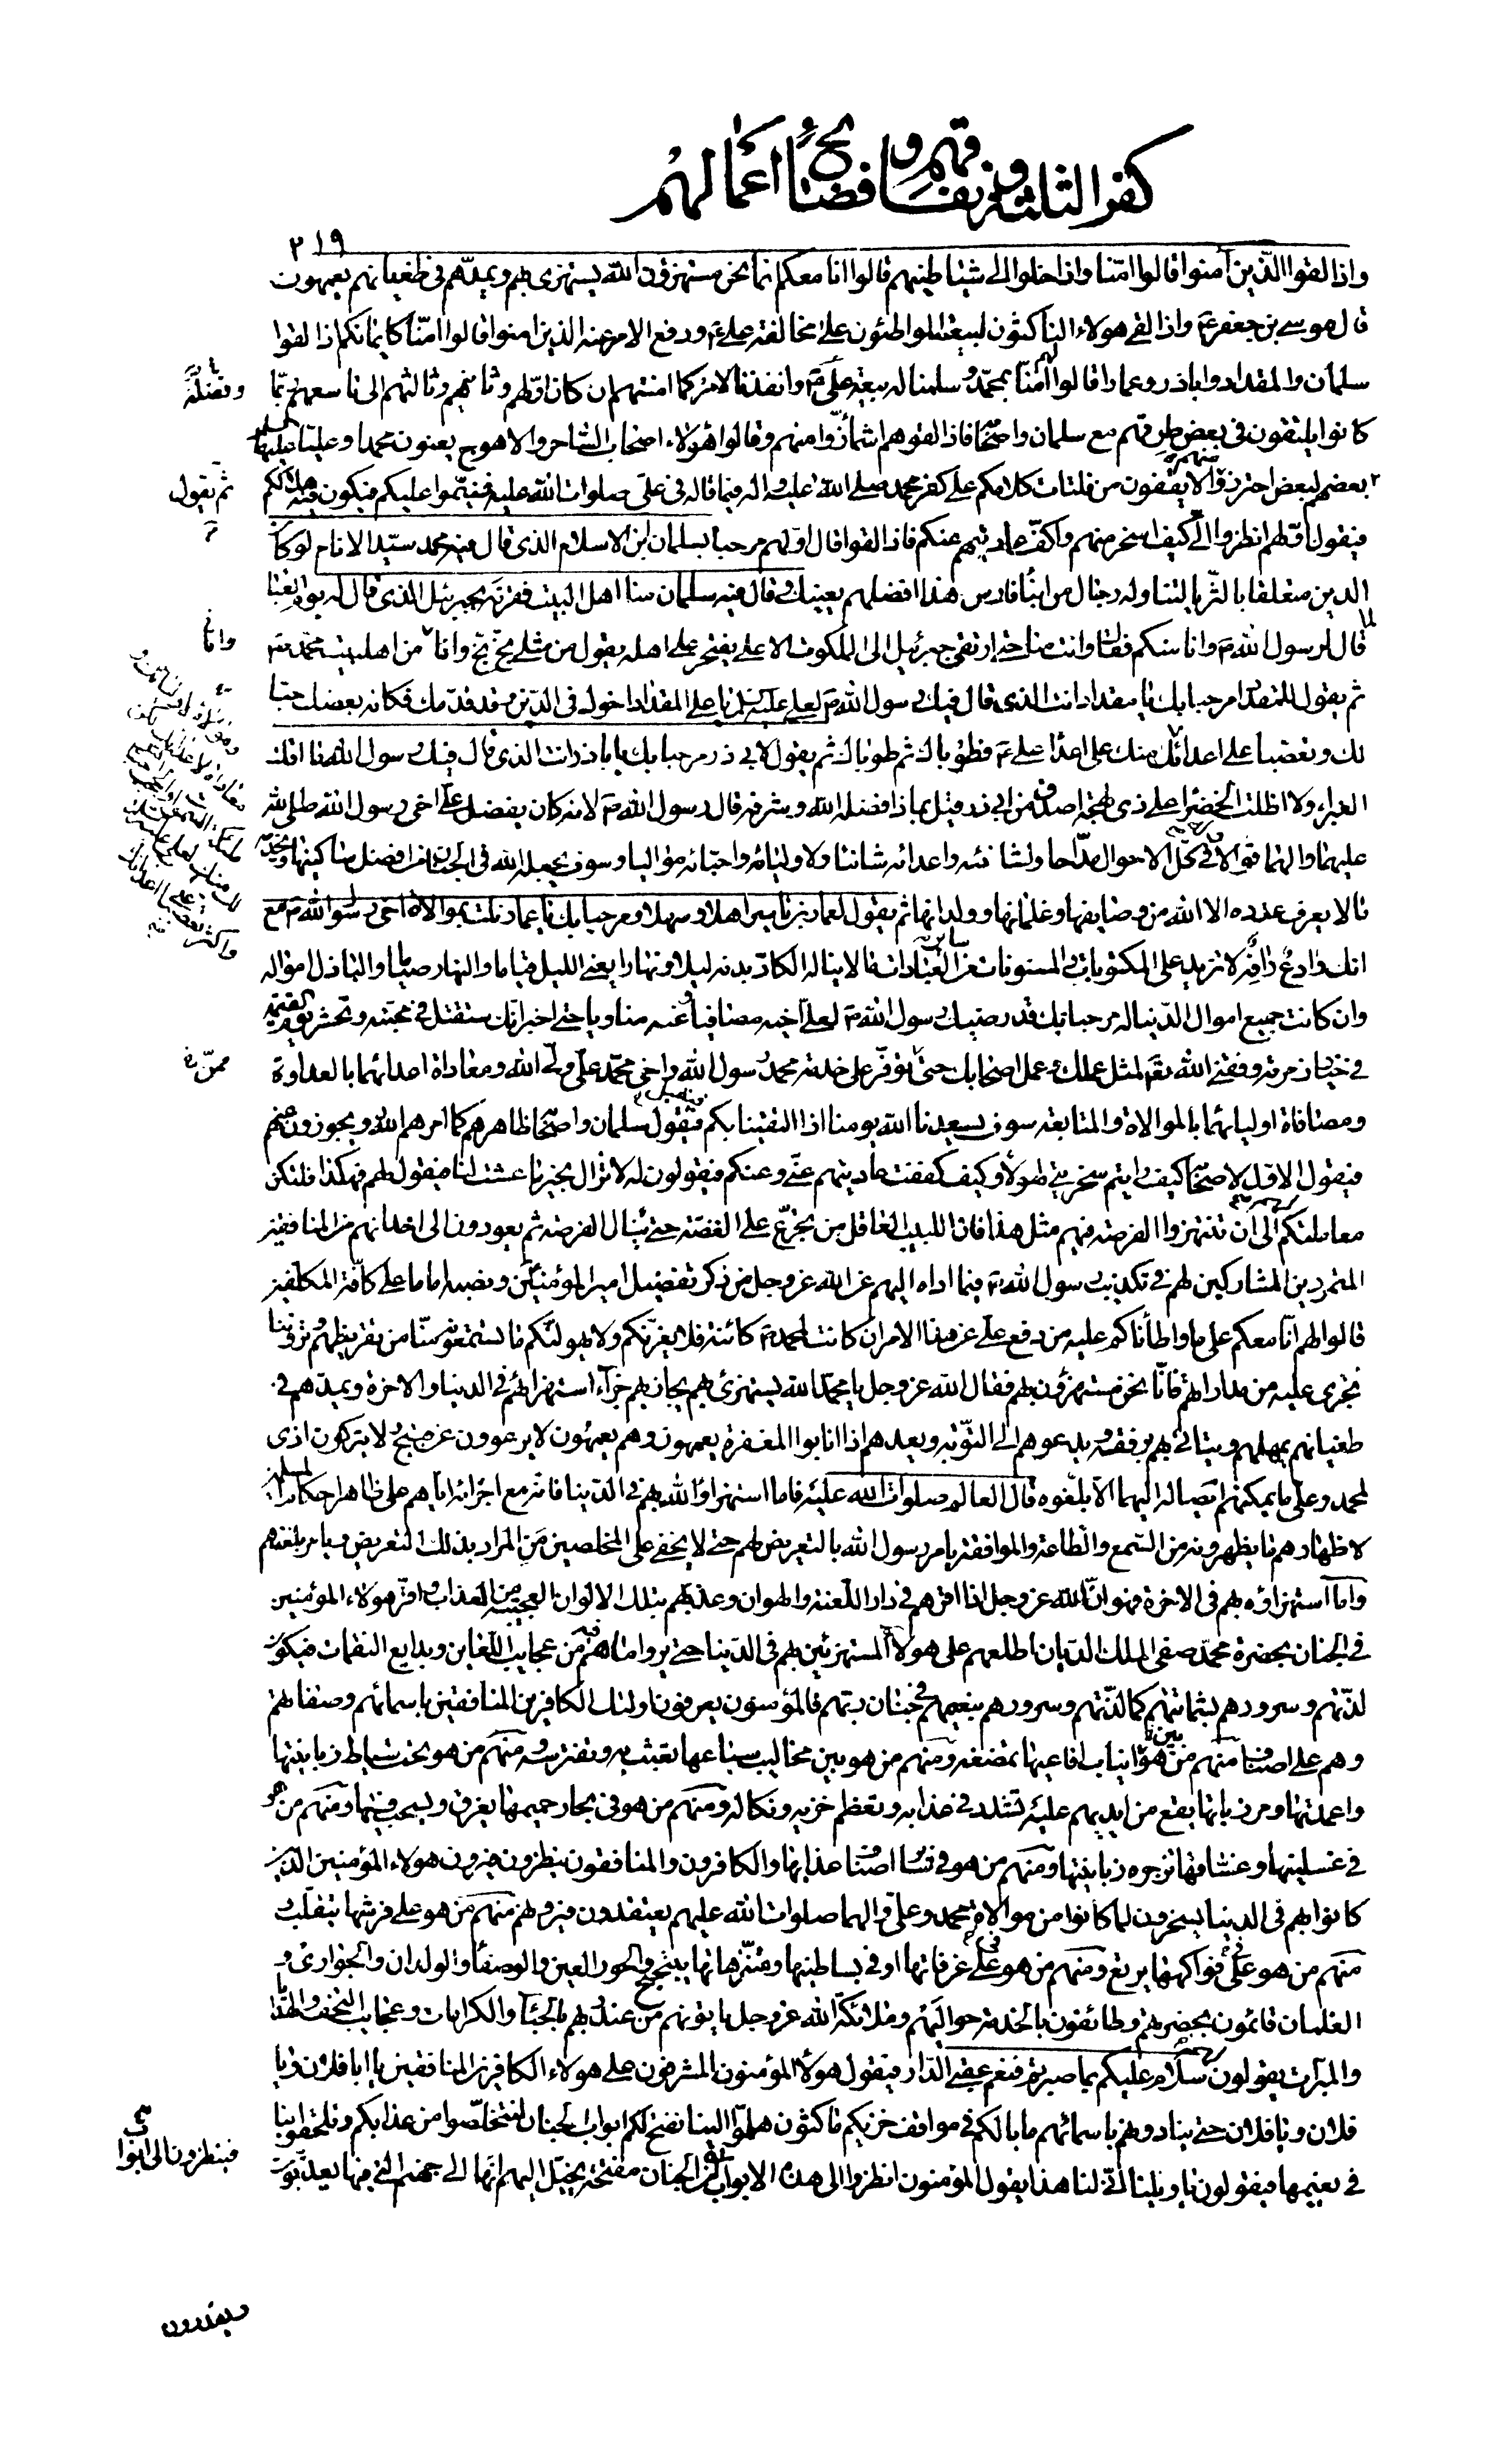 كفر الثلثة و نفاقهم و فضائح أعمالهم
٢١٩
واذا لقوا الذين آمنوا قالوا امنا واذا خلوا الى شياطينهم قالوا انا معكم انما نحن مستهزؤن الله يستهزئ بهم ويمدهم في طغيانهم يعمهون
قال موسى بن جعفر ع واذا لقي هولاء الناكثون لبيعته المواطئون على مخالفة علي ع ودفع الامر عنه الذين امنوا قالوا امنا كايمانكم اذا لقوا
سلمان والمقداد واباذر وعمارا قالوا لهم امنا بمحمد وسلمنا له بيعة علي ع وانفذنا لامره كما امنتم ان كان اولهم وثانيهم وثالثهم الى تاسعهم ربما
كانوا يلتقون في بعض طرقهم مع سلمان واصحابه فاذا لقوهم اشمأزوا منهم وقالوا هؤلاء اصحاب الساحر والاهوج يعنون محمدا وعليا
بعضهم لبعض احترزوا منهم لا يقفون من فلتات كلامكم على كفر محمد صلى الله عليه واله فيما قاله في علي صلوات الله عليه فينموا عليكم فيكون فيه هلاككم
فيقول اولهم انظروا الي كيف اسخر منهم واكف عاديتهم عنكم فاذا لقوا قال اولهم مرحبا بسلمان ابن الاسلام الذي قال فيه محمد سيد الانام لو كان
الدين متعلقا بالثريا لتناوله رجال من ابناء فارس هذا افضلهم يعنيك وقال فيه سلمان منا اهل البيت فقرنه بجبرئيل الذي قال له يوم العبا
لما قال لرسول الله ص وانا منكم فقال وانت منا حتى ارتقى جبرئيل الى الملكوت الاعلى يفتخر على اهله يقول من مثلي بخ بخ وانا من اهل بيت محمد ص
ثم يقول للمقداد مرحبا بك يا مقداد انت الذي قال فيك رسول الله ص لعلي عليه السلم يا علي المقداد اخوك في الدين وقد قد منك فكانه بعضك حبا
لك وتعصبا على اعدائك منك على اعداء علي ع فطوباك ثم طوباك ثم يقول لابي ذر مرحبا بك يا باذر انت الذي قال فيك رسول الله ما اقلت
الغبراء ولا اظلت الخضراء على ذي لهجة اصدق من ابي ذر قيل بماذا فضله الله وشرفه قال رسول الله ص لانه كان بفضل علي اخي رسول الله صلى الله
عليهما والهما قوالا وله في كل الاحوال مداحا ولشانئيه واعدائه شانئا ولاوليائه واحبائه مواليا وسوف يجعله الله في الجنان من افضل ساكنيها ويخدمه
ما لا يعرف عدده الا الله من وصايفها وغلمانها وولدانها ثم يقول لعمار بن ياسر اهلا وسهلا ومرحبا بك يا عمار نلت بموالاة اخي رسول الله ص مع
انك وادع رافه لا تزيد على المكتوبات والمسنونات من سائر العبادات ما لا يناله الكاد بدنه ليلا ونهارا يعني الليل قياما والنهار صياما والباذل امواله
وان كانت جميع اموال الدنيا له مرحبا بك قد رضيك رسول الله ص لعلي اخيه مصافيا وعنه مناويا حتى اخبر انك ستقتل في محبته وتحشر يوم القيمة
في خيار زمرته وفقني الله تع لمثل عملك وعمل اصحابك حتى توفر على خدمة محمد رسول الله واخي محمد علي ولي الله ومعاداة اعدائهما بالعداوة
ومصافاة اوليائهما بالموالاة والمتابعة سوف يسعدنا الله يومنا اذا التقينا بكم فيقول سلمان واصحابه ظاهرهم كما امرهم الله ويجوزون عنهم
فيقول الاول لاصحابه كيف رايتم سخريتي بهولاء وكيف كففت عاديتهم عني وعنكم فيقولون له لا تزال بخير ما عشت لنا فيقول لهم فهكذا فلتكن
معاملتكم لهم الى ان تنتهزوا الفرصة فيهم مثل هذا فان اللبيب العاقل من تجرع على الغصة حتى ينال الفرصة ثم يعودون الى اخدانهم من المنافقين
المتمردين المشاركين لهم في تكذيب رسول الله ص فيما اداه اليهم عن الله عز وجل من ذكر تفضيل امير المؤمنين ونصبه اماما على كافة المكلفين
قالوا لهم انا معكم على ما واطأناكم عليه من دفع علي عن هذا الامر ان كانت لمحمد ص كائنة فلا يغرنكم ولا يهولنكم ما تسمعونه منا من تقريظهم وترونا
نجترى عليه من مداراتهم فانا نحن مستهزؤن بهم فقال الله عز وجل يا محمد الله يستهزئ بهم يجازيهم جزاء استهزائهم في الدنيا والاخرة ويمدهم في
طغيانهم يمهلهم ويتانى بهم برفقه ويدعوهم الى التوبة ويعدهم اذا انابوا المغفرة يعمهون وهم يعمهون لا يرعوون عن قبيح ولا يتركون اذى
لمحمد وعلي ما يمكنهم ايصاله اليهما الا بلغوه قال العالم صلوات الله عليه فاما استهزاء الله بهم في الدنيا فانه مع اجرائه اياهم على ظاهر احكام المسلمين
لاظهارهم ما يظهرونه من السمع والطاعة والموافقة يامر رسول الله بالتعريض لهم حتى لا يخفى على المخلصين من المراد بذلك التعريض ويامر بلعنهم
واما استهزاؤه بهم في الاخرة فهو ان الله عز وجل اذا اقرهم في دار اللعنة والهوان وعذبهم بتلك الالوان العجيبة من العذاب واقر هولاء المؤمنين
في الجنان بحضرة محمد صفي الملك الديان اطلعهم على هولاء المستهزئين بهم في الدنيا حتى يروا ما هم فيه من عجايب اللعاين وبدايع النقمات فيكون
لذتهم وسرورهم بشماتتهم كما لذتهم وسرورهم بنعيمهم في جنان ربهم فالمؤمنون يعرفون اولئك الكافرين المنافقين باسمائهم وصفاتهم
وهم على اصناف منهم من هو بين انياب افاعيها تمضغه ومنهم من هو بين مخاليب سباعها تعبث به وتفترسه ومنهم من هو تحت سياط زبانيتها
واعمدتها ومرزباتها يقع من ايديهم عليه تشدد في عذابه وتعظم خزيه ونكاله ومنهم من هو في بحار حميمها يغرق ويسحب فيها ومنهم من هو
في غسلينها وغساقها تزجره زبانيتها ومنهم من هو في ساير اصناف عذابها والكافرون والمنافقون ينظرون فيرون هولاء المؤمنين الذين
كانوا بهم في الدنيا يسخرون لما كانوا من موالاة محمد وعلي والهما صلوات الله عليهم يعتقدون فيرونهم منهم من هو على فرشها يتقلب
ومنهم من هو على فواكهها يرتع ومنهم من هو على غرفاتها او في بساطينها ومتنزهاتها يتبحبح والحور العين والوصفاء والولدان والجواري و
الغلمان قائمون بحضرتهم وطائفون بالخدمة حواليهم وملائكة الله عز وجل ياتونهم من عند ربهم بالحباء والكرامات وعجايب التحف والهدايا
والمبرات يقولون سلام عليكم بما صبرتم فنعم عقبى الدار فيقول هولاء المؤمنون المشرفون على هولاء الكافرين المنافقين يا ابا فلان ويا
فلان ويا فلان حتى ينادوهم باسمائهم ما بالكم في مواقف خزيكم ماكثون هلموا الينا نفتح لكم ابواب الجنان لتتخلصوا من عذابكم وتلحقوا بنا
في نعيمها فيقولون يا ويلنا انى لنا هذا يقول المؤمنون انظروا الى هذه الابواب فينظرون الى ابواب من الجنان مفتحة يخيل اليهم انها الى جهنم التي فيها يعذبون
ثم يقول
وانا
ويقدرون